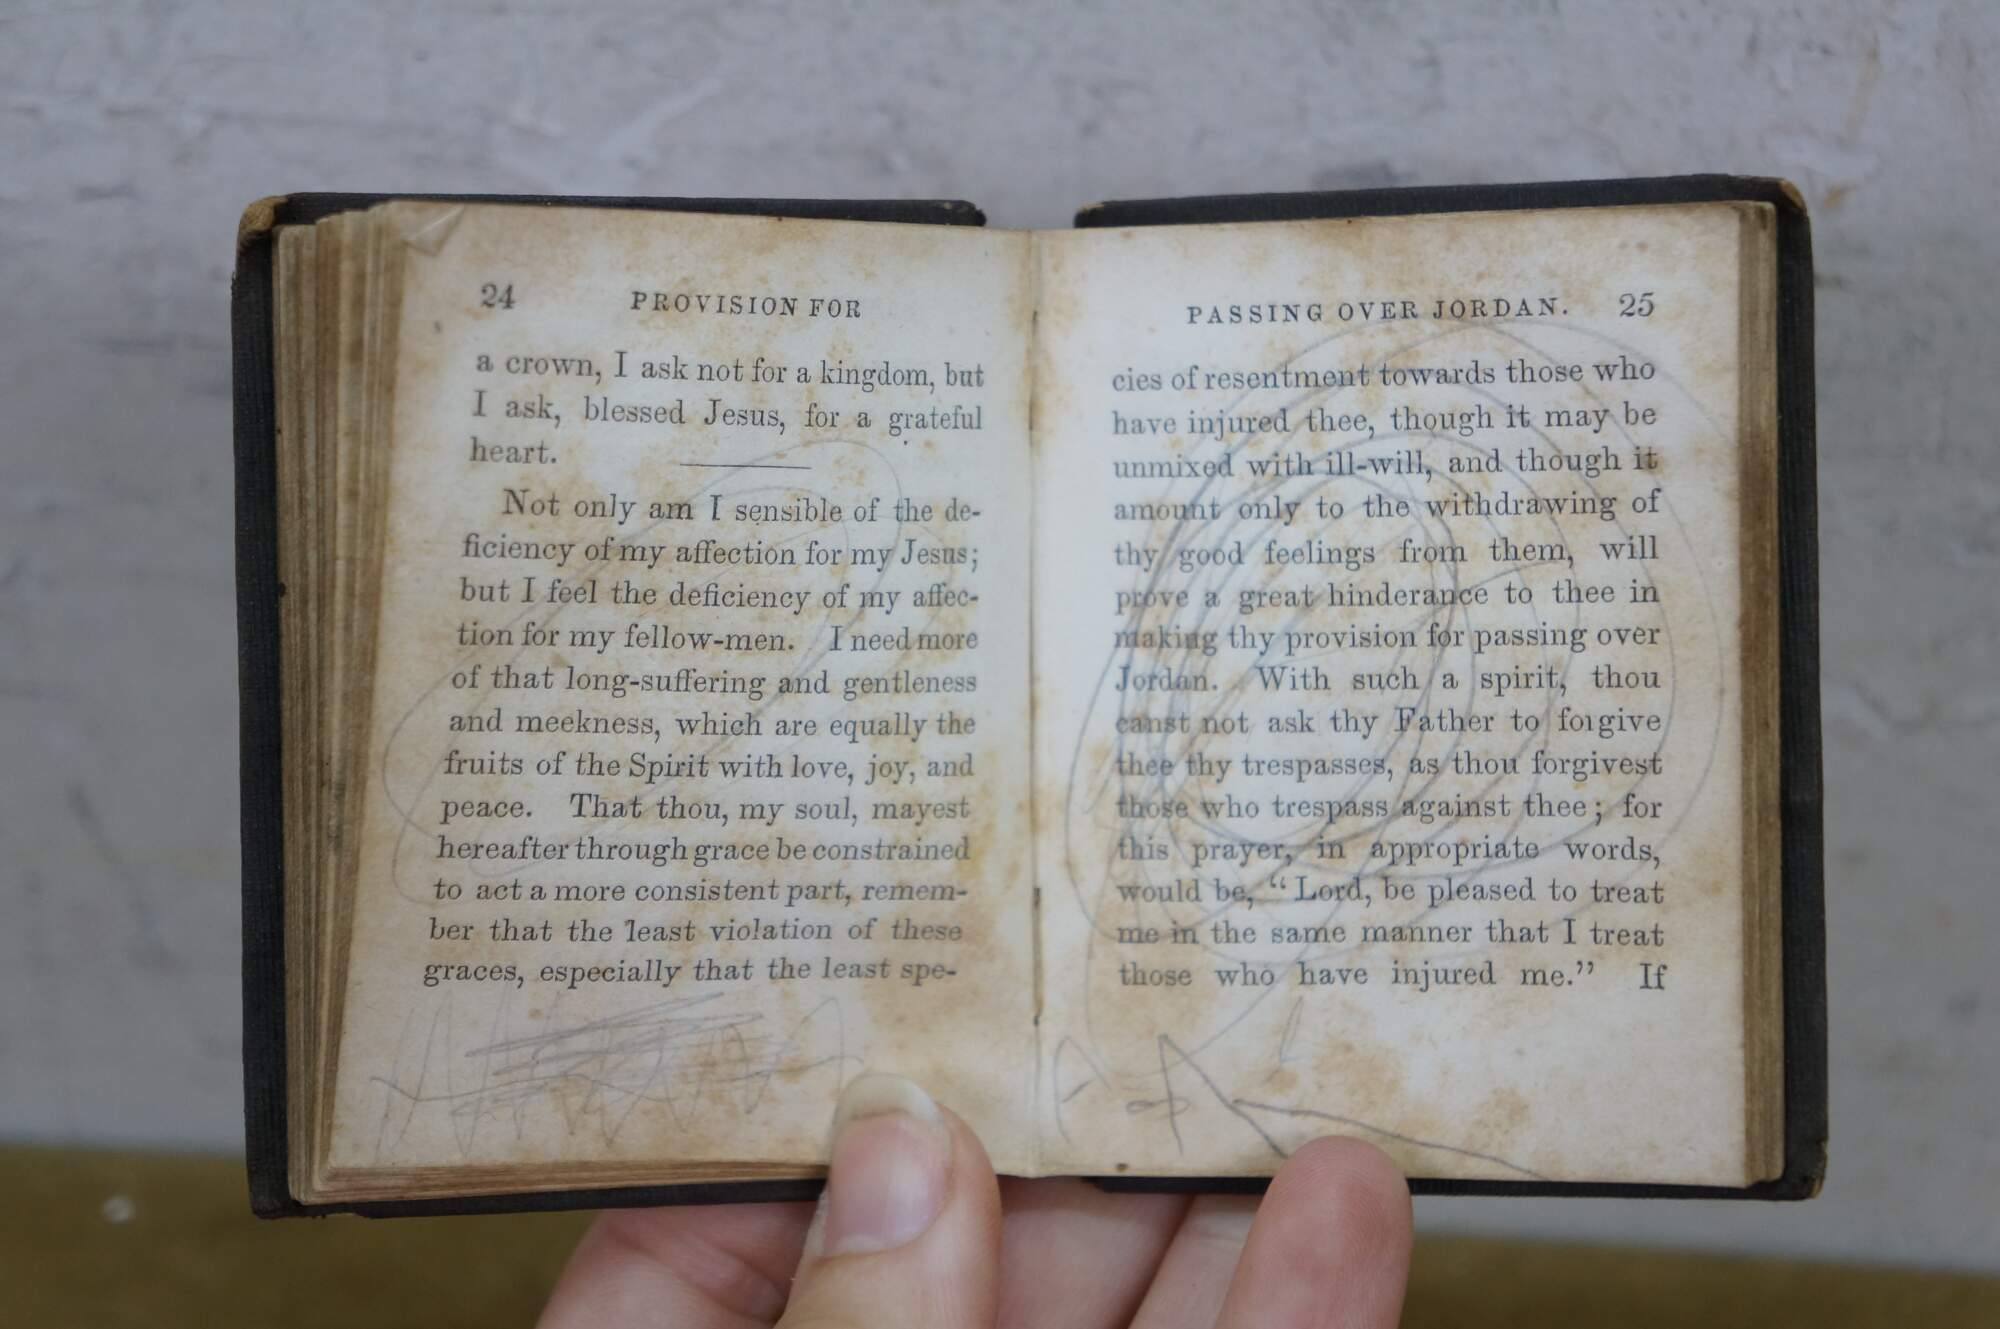 24 PROVISION FOR
a crown, I ask not for a kingdom, but
I ask, blessed Jesus, for a grateful
heart.
Not only am I sensible of the de-
ficiency of my affection for my Jesus;
but I feel the deficiency of my affec-
tion for my fellow-men. I need more
of that long-suffering and gentleness
and meekness, which are equally the
fruits of the Spirit with love, joy, and
peace. That thou, my soul, mayest
hereafter through grace be constrained
to act a more consistent part, remem-
ber that the least violation of these
graces, especially that the least spe-
PASSING OVER JORDAN. 25
cies of resentment towards those who
have injured thee, though it may be
unmixed with ill-will, and though it
amount only to the withdrawing of
thy good feelings from them, will
prove a great hinderance to thee in
making thy provision for passing over
Jordan. With such a spirit, thou
canst not ask thy Father to forgive
thee thy trespasses, as thou forgivest
those who trespass against thee; for
this prayer, in appropriate words,
would be, “Lord, be pleased to treat
me in the same manner that I treat
those who have injured me.” If